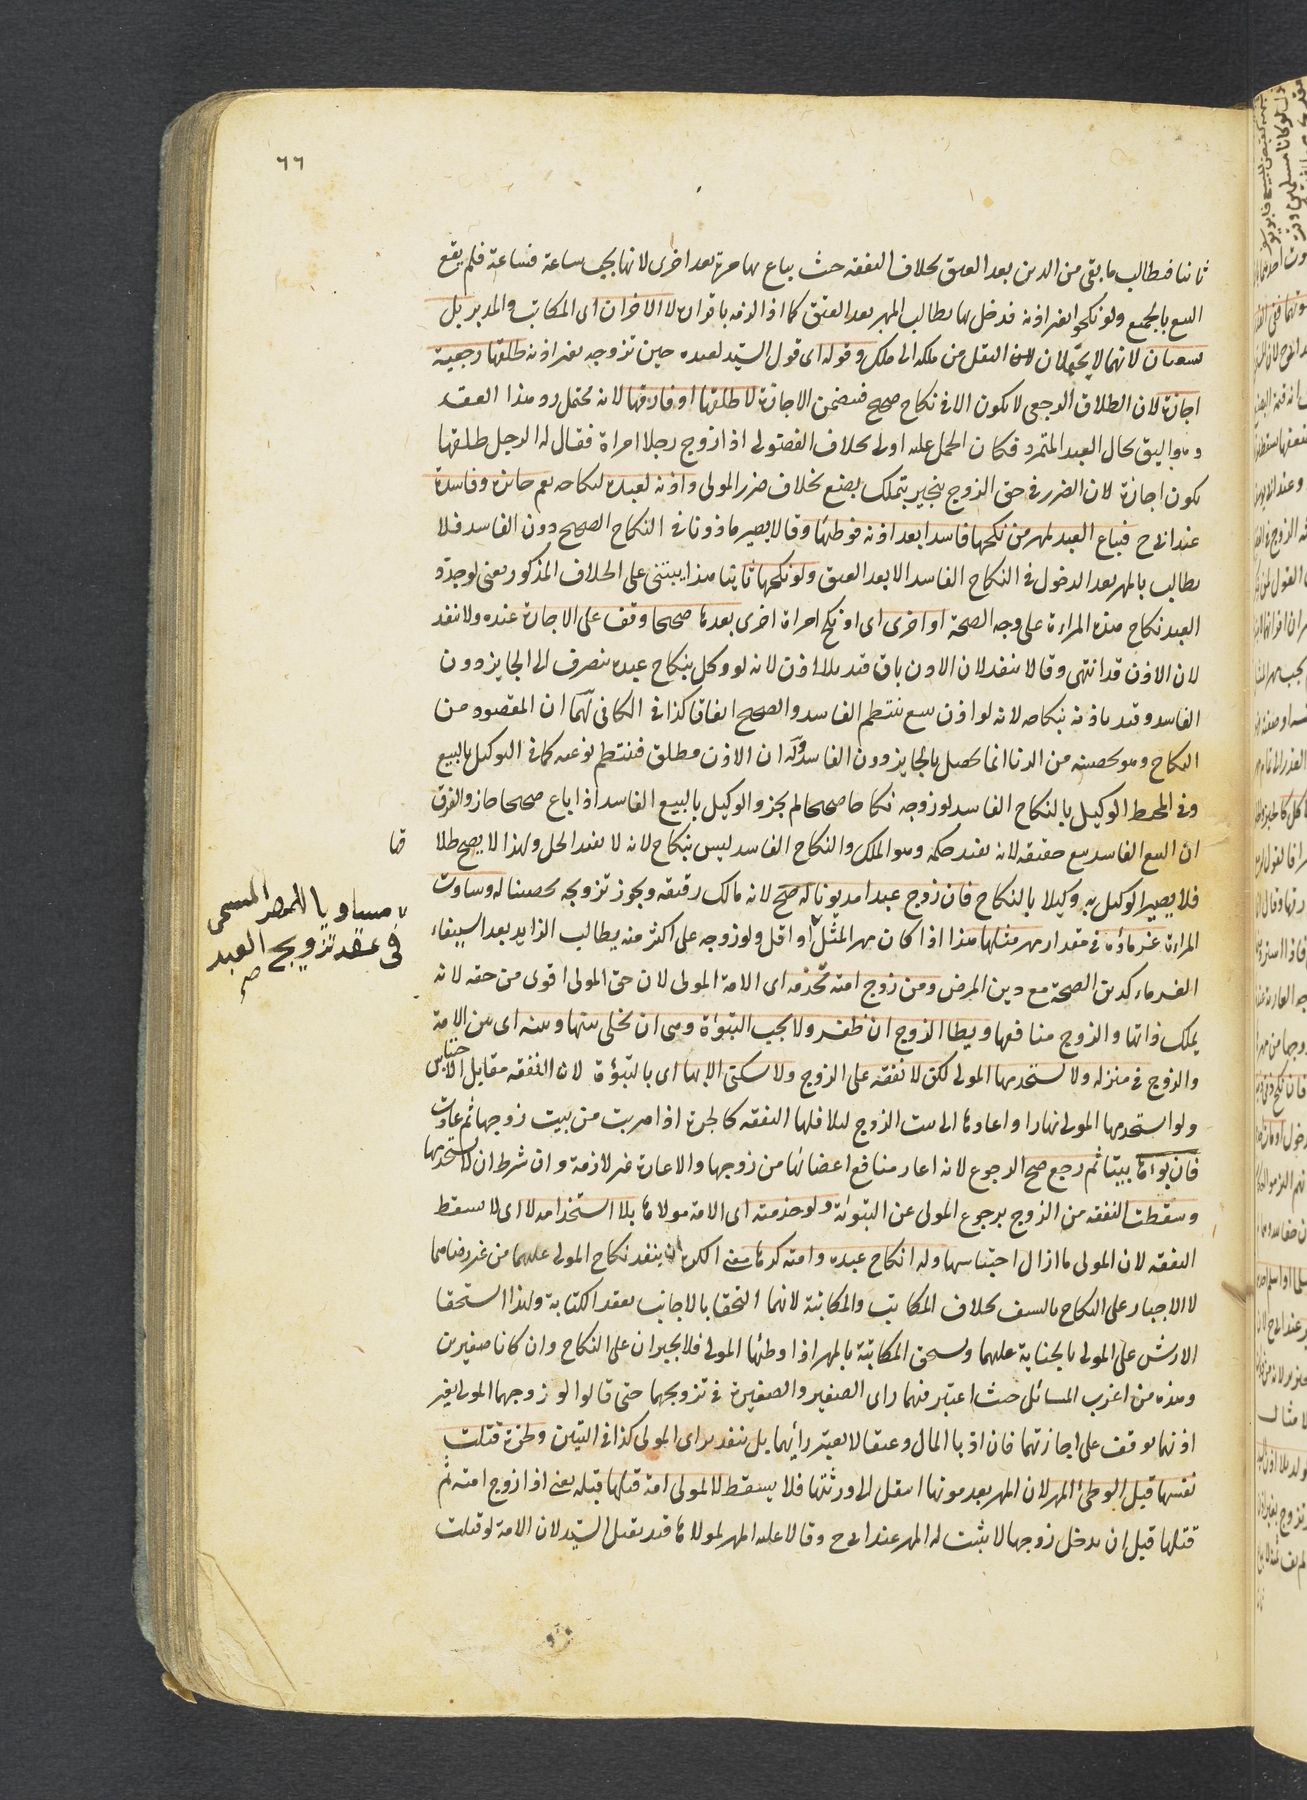 ٦٦
ثانيا فيطالب ما بقى من الدين بعد العتق بخلاف النفقة حيث يباع بها مرة بعد اخرى لانها يجب ساعة فساعة فلم يقع
البيع بالجميع ولو نكحوا بغير اذنه فدخل بها يطالب المهر بعد العتق كما اذا لزمه باقراره لا الاخران اى المكاتب والمدبر بل
يسعيان لانهما لا يحتملان النقل من ملك الى ملك وقوله اى قول السيد لعبده حين تزوجه بغير اذنه طلقها رجعية
اجازة لان الطلاق الرجعى لا يكون الا فى نكاح صحيح فيتضمن الاجازة لا طلقها او فارقها لانه يحتمل رد هذا العقد
وهو اليق بحال العبد المتمرد فكان الحمل عليه اولى بخلاف الفضولى اذا زوج رجلا امراة فقال له الرجل طلقها
يكون اجازة لان الضرر فى حق الزوج ينجبر بتملك بضع بخلاف ضرر المولى واذنه لعبده لنكاحه يعم جائزه وفاسده
عند ابى ح فيباع العبد لمهر من نكحها فاسدا بعد اذنه فوطئها وقالا يصير ماذونا فى النكاح الصحيح دون الفاسد فلا
يطالب بالمهر بعد الدخول فى النكاح الفاسد الا بعد العتق ولو نكحها ثانيا هذا يبتنى على الخلاف المذكور يعنى لو جدد
العبد نكاح هذه المراءة على وجه الصحة او اخرى اى او نكح امراة اخرى بعدها صحيحا وقف على الاجازة عنده ولا نفذ
لان الاذن قد انتهى وقالا ينفذ لان الاذن باق قيد بالاذن لانه لو وكل بنكاح عبده ينصرف الى الجايز دون
الفاسد وقيد باذنه بنكاحه لانه لو اذن ببيع ينتظم الفاسد والصحيح اتفاقا كذا فى الكافى لهما ان المقصود من
النكاح وهو تحصينه من الزنا انما يحصل بالجايز دون الفاسد وله ان الاذن مطلق فينتظم نوعيه كما فى التوكيل بالبيع
وفى المحيط الوكيل بالنكاح الفاسد لو زوجه نكاحا صحيحا لم يجز والوكيل بالبيع الفاسد اذا باع صحيحا جاز والفرق
ان البيع الفاسد بيع حقيقة لانه يفيد حكمه وهو الملك والنكاح الفاسد ليس بنكاح لانه لا يفيد الحل ولهذا لا يصح طلا
قها
فلا يصير الوكيل به وكيلا بالنكاح فان زوج عبدا مديونا له صح لانه مالك رقيقه ويجوز تزويجه تحصينا له وساوت
المراءة غرماؤه فى مقدار مهر مثلها هذا اذا كان مهر المثل او اقل ولو زوجه على اكثر منه يطالب الزايد بعد استيفاء
مساويا للمهر المسمى
فى عقد تزويج العبد
صح
الغرماء كدين الصحة مع دين المرض ومن زوج امته تخدمه اى الامة المولى لان حق المولى اقوى من حقه لانه
يملك ذاتها والزوج منافعها ويطا الزوج ان ظفر ولا يجب التبوءة وهى ان يخلى بينها وبينه اى بين الامة
والزوج فى منزله ولا يستخدمها المولى لكن لا نفقة على الزوج ولا سكنى الا بها اى بالتبوءة لان النفقة مقابل الاحتباس
ولو استخدمها المولى نهارا واعادها الى بيت الزوج ليلا فلها النفقة كالحرة اذا هربت من بيت زوجها ثم عادت
فان بواها بيتا ثم رجع صح الرجوع لانه اعار منافع اعضائها من زوجها والاعارة غير لازمة وان شرط ان لا يستخدمها
وسقطت النفقة من الزوج برجوع المولى عن التبوئة ولو خدمته اى الامة مولاها بلا استخدامه لا اى لا يسقط
النفقة لان المولى ما ازال احتباسها وله انكاح عبده وامته كرها معنى الكره ان ينفذ نكاح المولى عليهما من غير رضاهما
لا الاجبار على النكاح بالسيف بخلاف المكاتب والمكاتبة لانهما التحقا بالاجانب بعقد الكتابة ولهذا استحقا
الارش على المولى بالجناية عليهما ويستحق المكاتبة بالمهر اذا وطئها المولى فلا يجبران على النكاح وان كانا صغيرين
وهذه من اغرب المسائل حيث اعتبر فيهما راى الصغير والصغيرة فى تزويجهما حتى قالوا لو زوجهما المولى بغير
اذنهما يوقف على اجازتهما فان اديا المال وعتقا لا يعتبر رايهما بل ينفذ براى المولى كذا فى التبيين ولحرة قتلت
نفسها قبل الوطى المهر لان المهر بعد موتها انتقل الى ورثتها فلا يسقط لا لمولى امة قتلها قبله يعنى اذا زوج امته ثم
قتلها قبل ان يدخل زوجها لا يثبت له المهر عند ابى ح وقالا عليه المهر لمولاها قيد بقتل السيد لان الامة لو قتلت